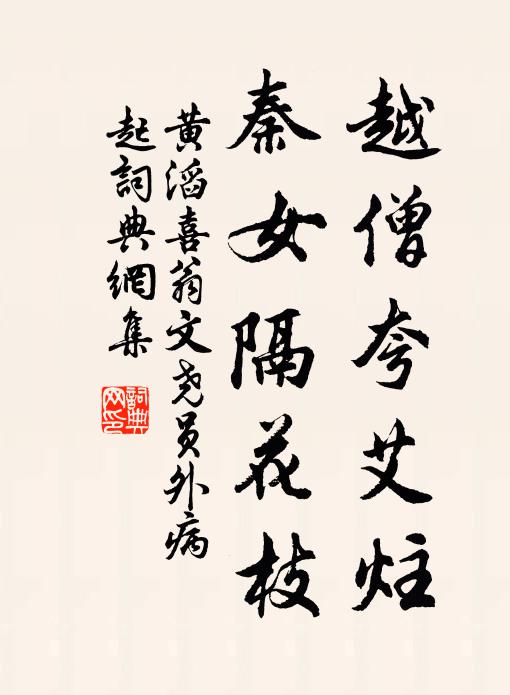 越僧夸艾炷
秦女隔花枝
黄滔喜翁文尧员外病
起詞典網集
詞典網印